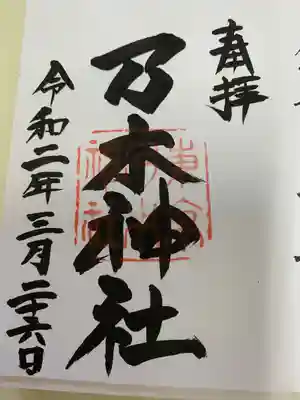 奉拝
乃木神社
令和二年三月二十六日